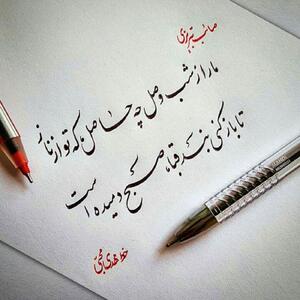 صائب تبریزی
ما را ز شب وصل چه حاصل که تو از ناز
تا باز کنی بند قبا، صبح دمیده است
خط مهدی